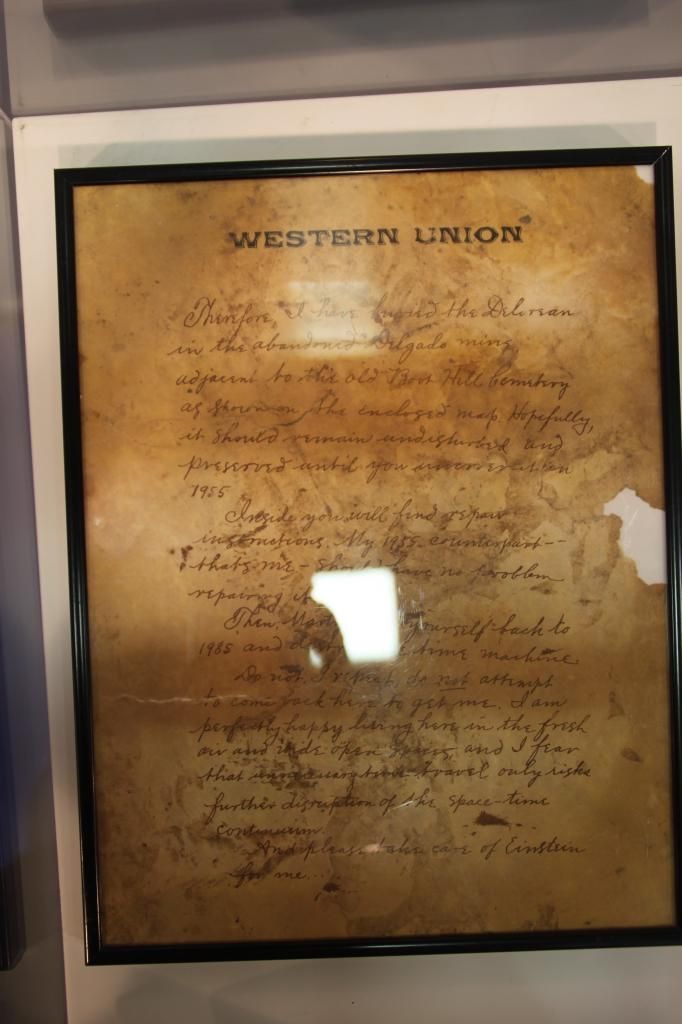 WESTERN UNION
Therefore, I have buried the Delorean
in the abandoned Delgado mine,
adjacent to the old Boot Hill Cemetery
as shown on the enclosed map. Hopefully,
it should remain undisturbed and
preserved until you uncover it in
1955
Inside you will find repair
instructions. My 1955 counterpart--
that's me - should have no problem
repairing it
Then, Marty yourself back to
1985 and time machine.
Do not, I repeat, do not attempt
to come back here to get me. I am
perfectly happy living here in the fresh
air and wide open spaces, and I fear
that unnecessary time travel only risks
further disruption of the space-time
continuum.
And please take care of Einstein
for me...